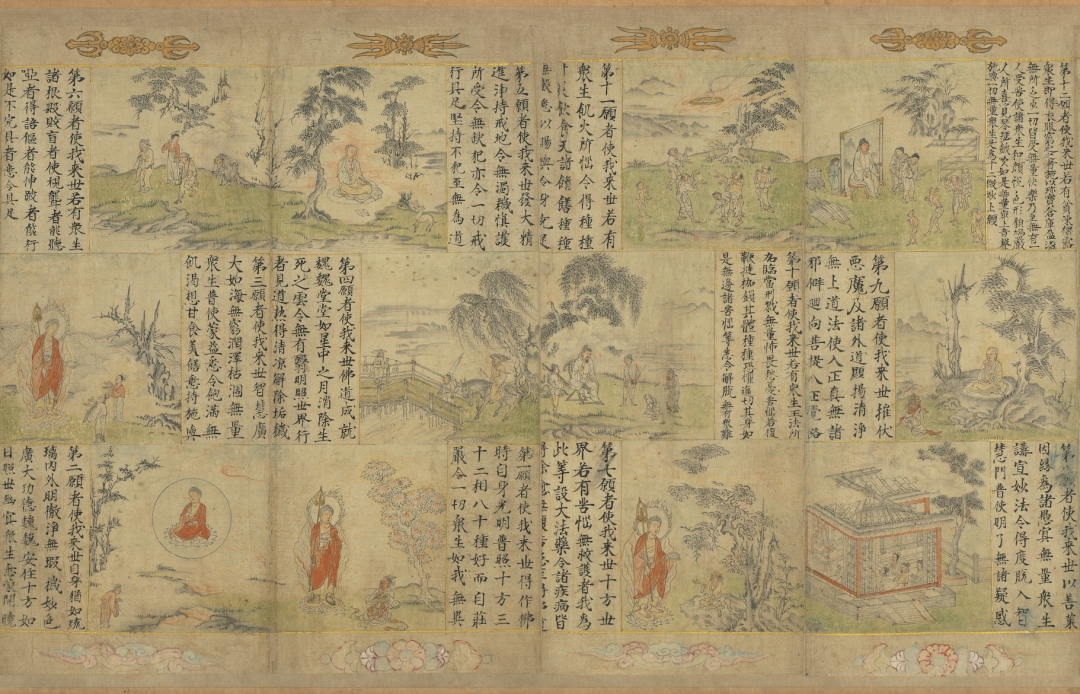 第十二願者使我來世若有貧凍裸露
眾生即得衣服窮乏之者施以珍寶倉庫盈溢
無所乏少一切皆受無量快樂乃至無有一
人受苦使諸眾生和顏悅色形貌端嚴
人所喜見琴瑟鼓吹如是無量最上音聲
施與一切無量眾生是為十二微妙上願
第十一願者使我來世若有
眾生飢火所惱令得種種
甘美飲食天諸餚饍種種
無數悉以賜與令身充足
第五願者使我來世發大精
進淨持戒地令無濁穢慎護
所受令無缺犯亦令一切戒
行具足堅持不犯至無為道
第六願者使我來世若有眾生
諸根毀敗盲者使視聾者能聽
瘂者得語僂者能伸跛者能行
如是不完具者悉令具足
第九願者使我來世摧伏
惡魔及諸外道顯揚清淨
無上道法使入正真無諸
邪僻廻向菩提八正覺路
第十願者使我來世若有眾生王法所
加臨當刑戮無量怖畏愁憂苦惱若復
鞭撻枷鎖其體種種恐懼逼切其身如
是無邊諸苦惱等悉令解脫無有眾難
第四願者使我來世佛道成就
巍巍堂堂如星中之月消除生
死之雲令無有翳明照世界行
者見道熱得清涼解除垢穢
第三願者使我來世智慧廣
大如海無窮潤澤枯涸無量
眾生普使蒙益悉令飽滿無
飢渴想甘食美饍悉持施與
第 願者使我來世以善業
因緣為諸愚冥無量眾生
講宣妙法令得度脫入智
慧門普使明了無諸疑惑
第七願者使我來世十方世
界若有苦惱無救護者我為
此等設大法藥令諸疾病皆
得除愈無復苦患至得佛道
第一願者使我來世得作佛
時自身光明普照十方三
十二相八十種好而自莊
嚴令一切眾生如我無異
第二願者使我來世自身猶如琉
璃內外明徹淨無瑕穢妙色
廣大功德巍巍安住十方如
日照世幽冥眾生悉蒙開曉